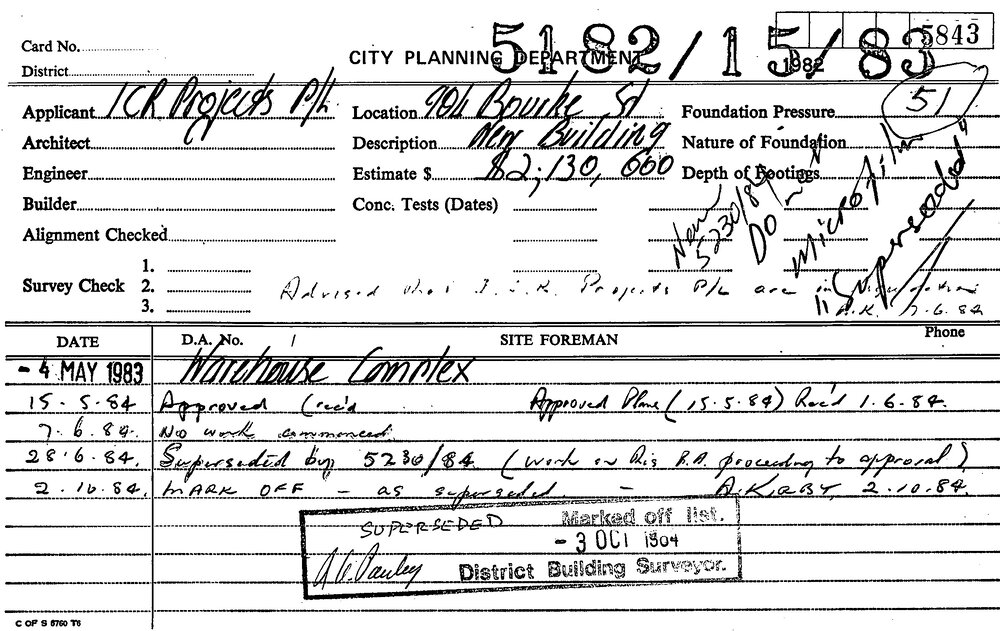 5182/15/83
5843
Card No.
CITY PLANNING DEPARTMENT
1982
District
51
Applicant ICR Projects P/L
Location 904 Bourke St
Foundation Pressure
Architect
Description New Building
Nature of Foundation
Engineer
Estimate $ $2,130,000
Depth of Footings
Builder
Conc. Tests (Dates)
Alignment Checked
New 5230/84
Do not Microfilm
"Superseded"
Survey Check
1.
2.
3.
Advised that I.C.R. Projects P/L are in
A.K. 7.6.84
DATE D.A. No. SITE FOREMAN Phone
- 4 MAY 1983 Warehouse Complex
15.5.84 Approved (rec'd Approved Plans (15.5.84) Rec'd 1.6.84.
7.6.84. No work commenced.
28.6.84. Superseded by 5230/84 (work on this B.A. proceeding to approval)
2.10.84. MARK OFF - as superseded. - A. KIRBY, 2.10.84.
SUPERSEDED Marked off list.
- 3 OCT 1984
A. C. Pauley District Building Surveyor.
C OF S 6760 T6